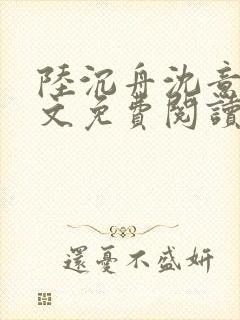 陸沉舟沈意
文免費閱讀
還憂不盛妍